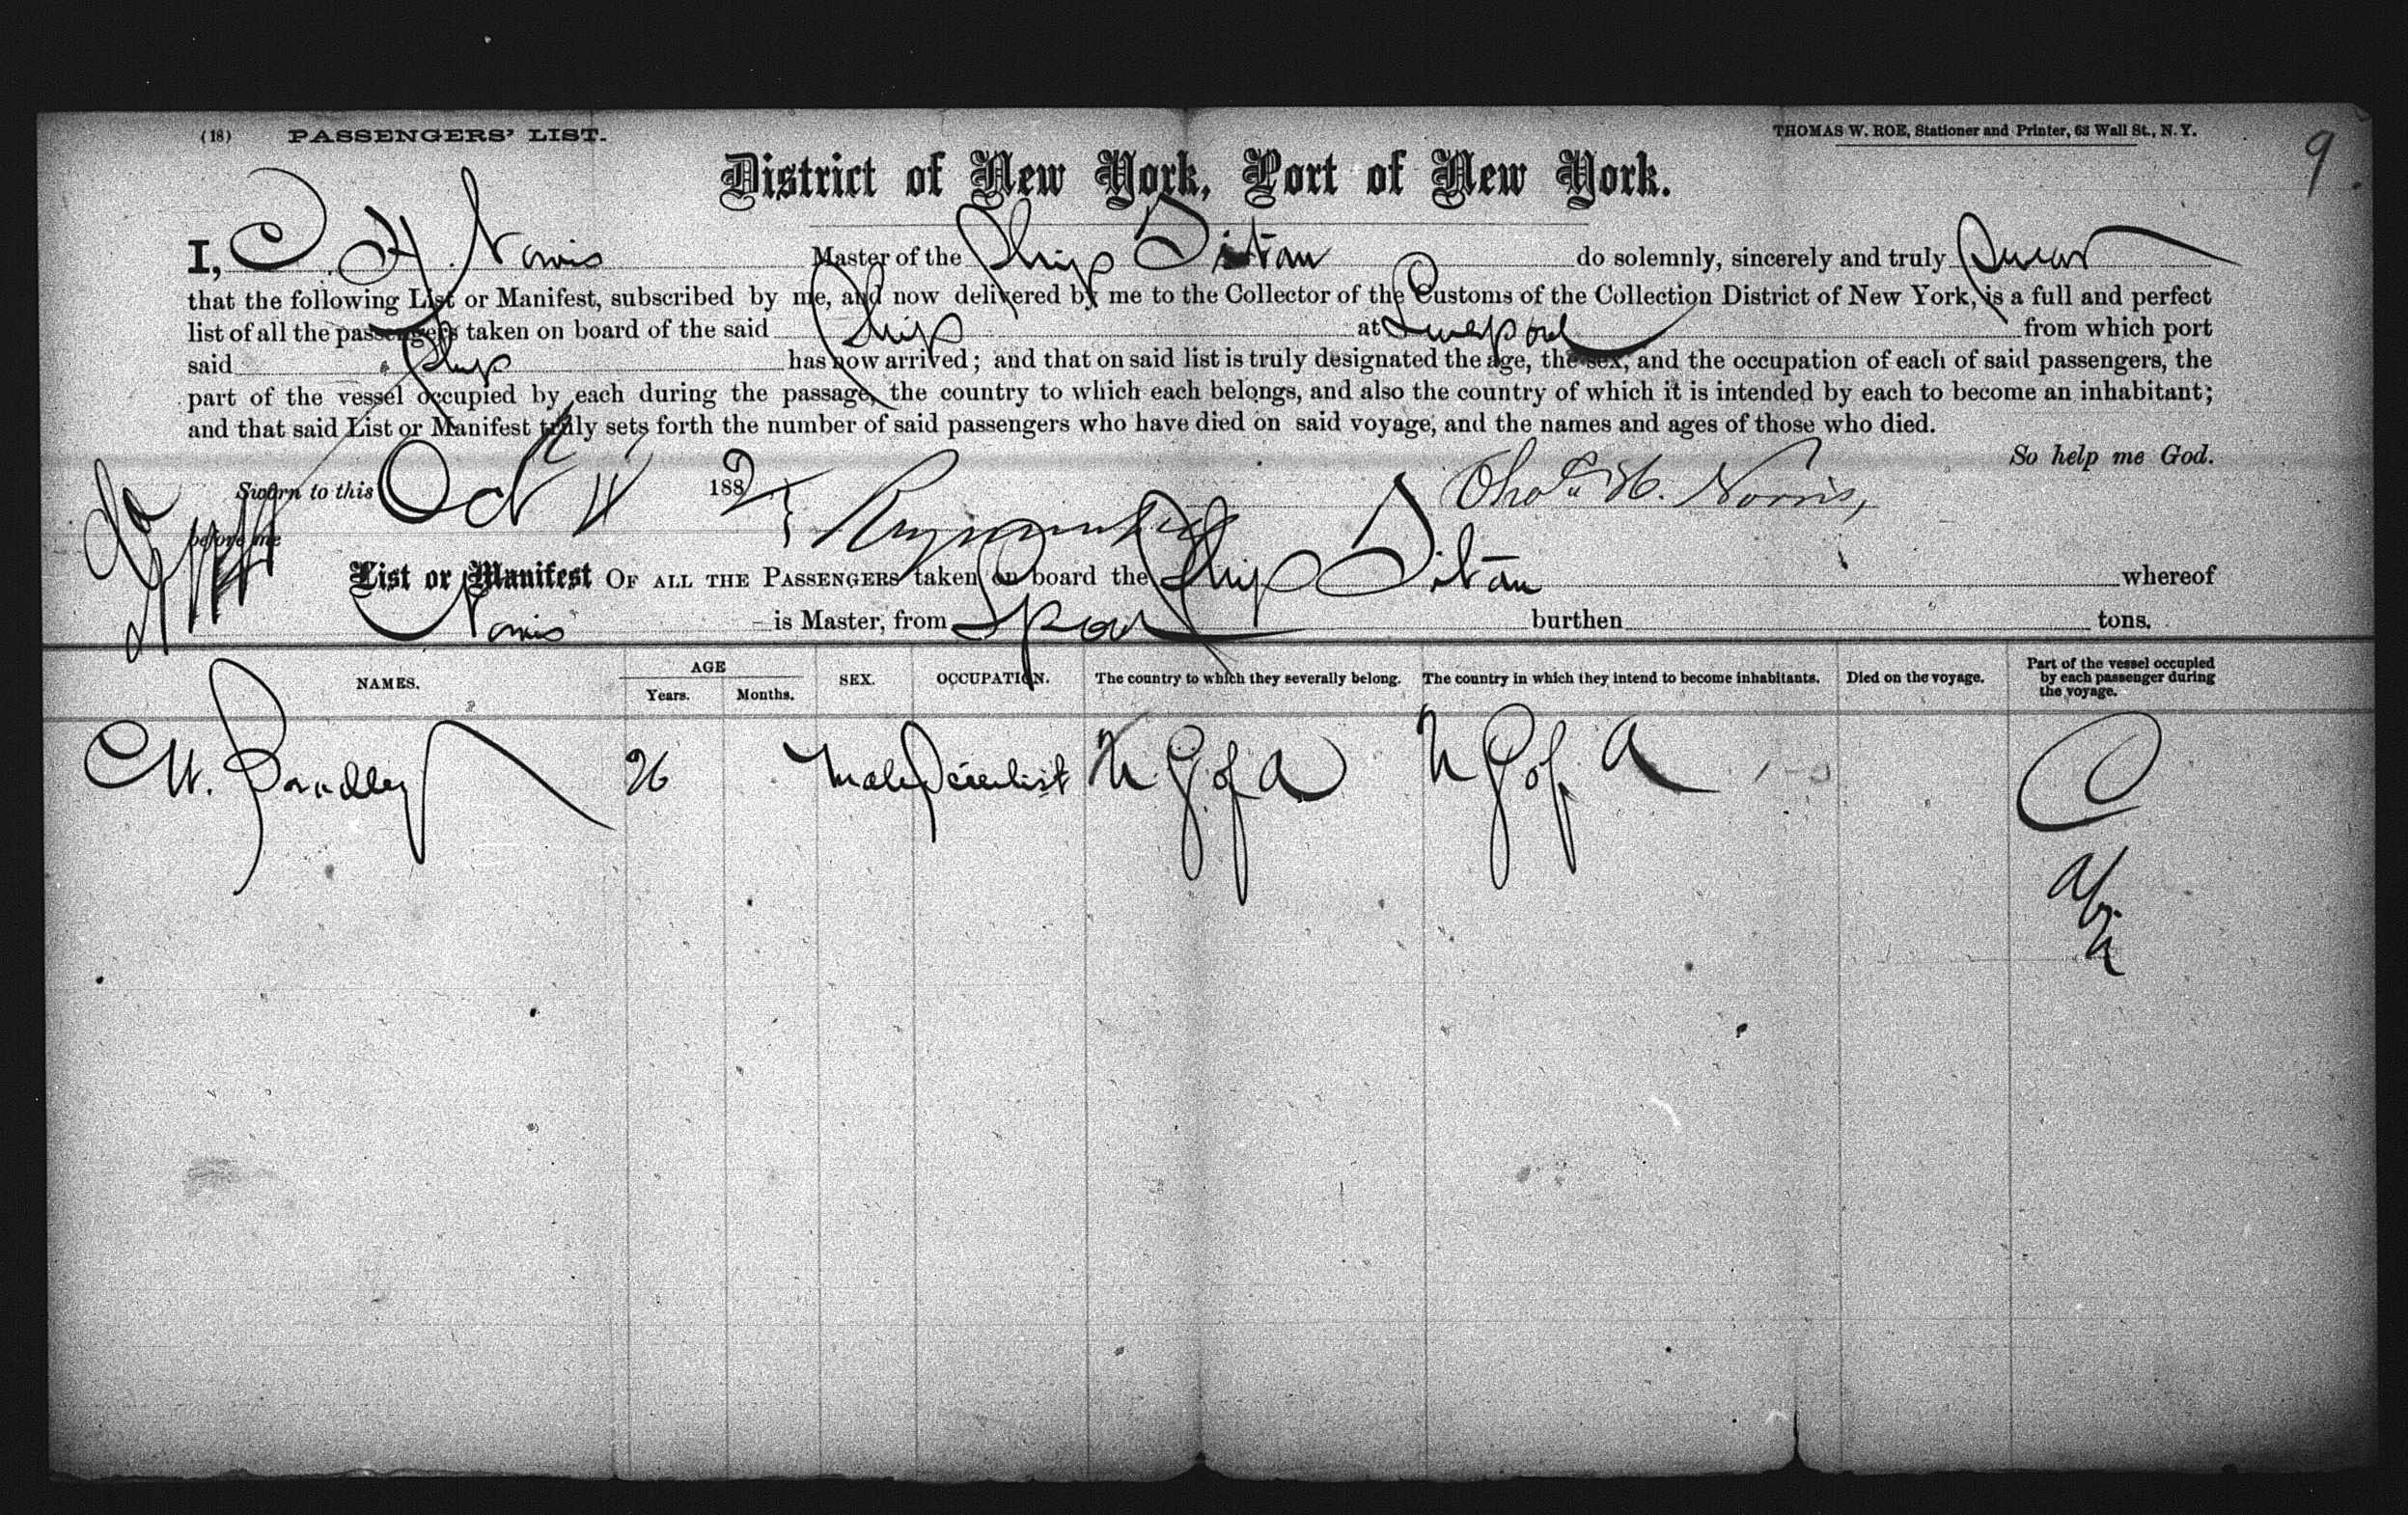 (18) PASSENGERS' LIST.
THOMAS W. ROE, Stationer and Printer, 63 Wall St., N. Y.
9
District of New York, Port of New York.
I, C. H. Norris Master of the Ship Titan do solemnly, sincerely and truly Swear
that the following List or Manifest, subscribed by me, and now delivered by me to the Collector of the Customs of the Collection District of New York, is a full and perfect
list of all the passengers taken on board of the said Ship at Liverpool from which port
said Ship has now arrived; and that on said list is truly designated the age, the sex, and the occupation of each of said passengers, the
part of the vessel occupied by each during the passage, the country to which each belongs, and also the country of which it is intended by each to become an inhabitant;
and that said List or Manifest truly sets forth the number of said passengers who have died on said voyage, and the names and ages of those who died.
So help me God.
Sworn to this Oct 11 1882 Chas. H. Norris,
before me
List or Manifest OF ALL THE PASSENGERS taken on board the Ship Titan whereof
Norris is Master, from Lpool burthen tons.
NAMES. AGE Years. Months. SEX. OCCUPATION. The country to which they severally belong. The country in which they intend to become inhabitants. Died on the voyage. Part of the vessel occupied by each passenger during the voyage.
26 Male Scientist U S of A U S of A C